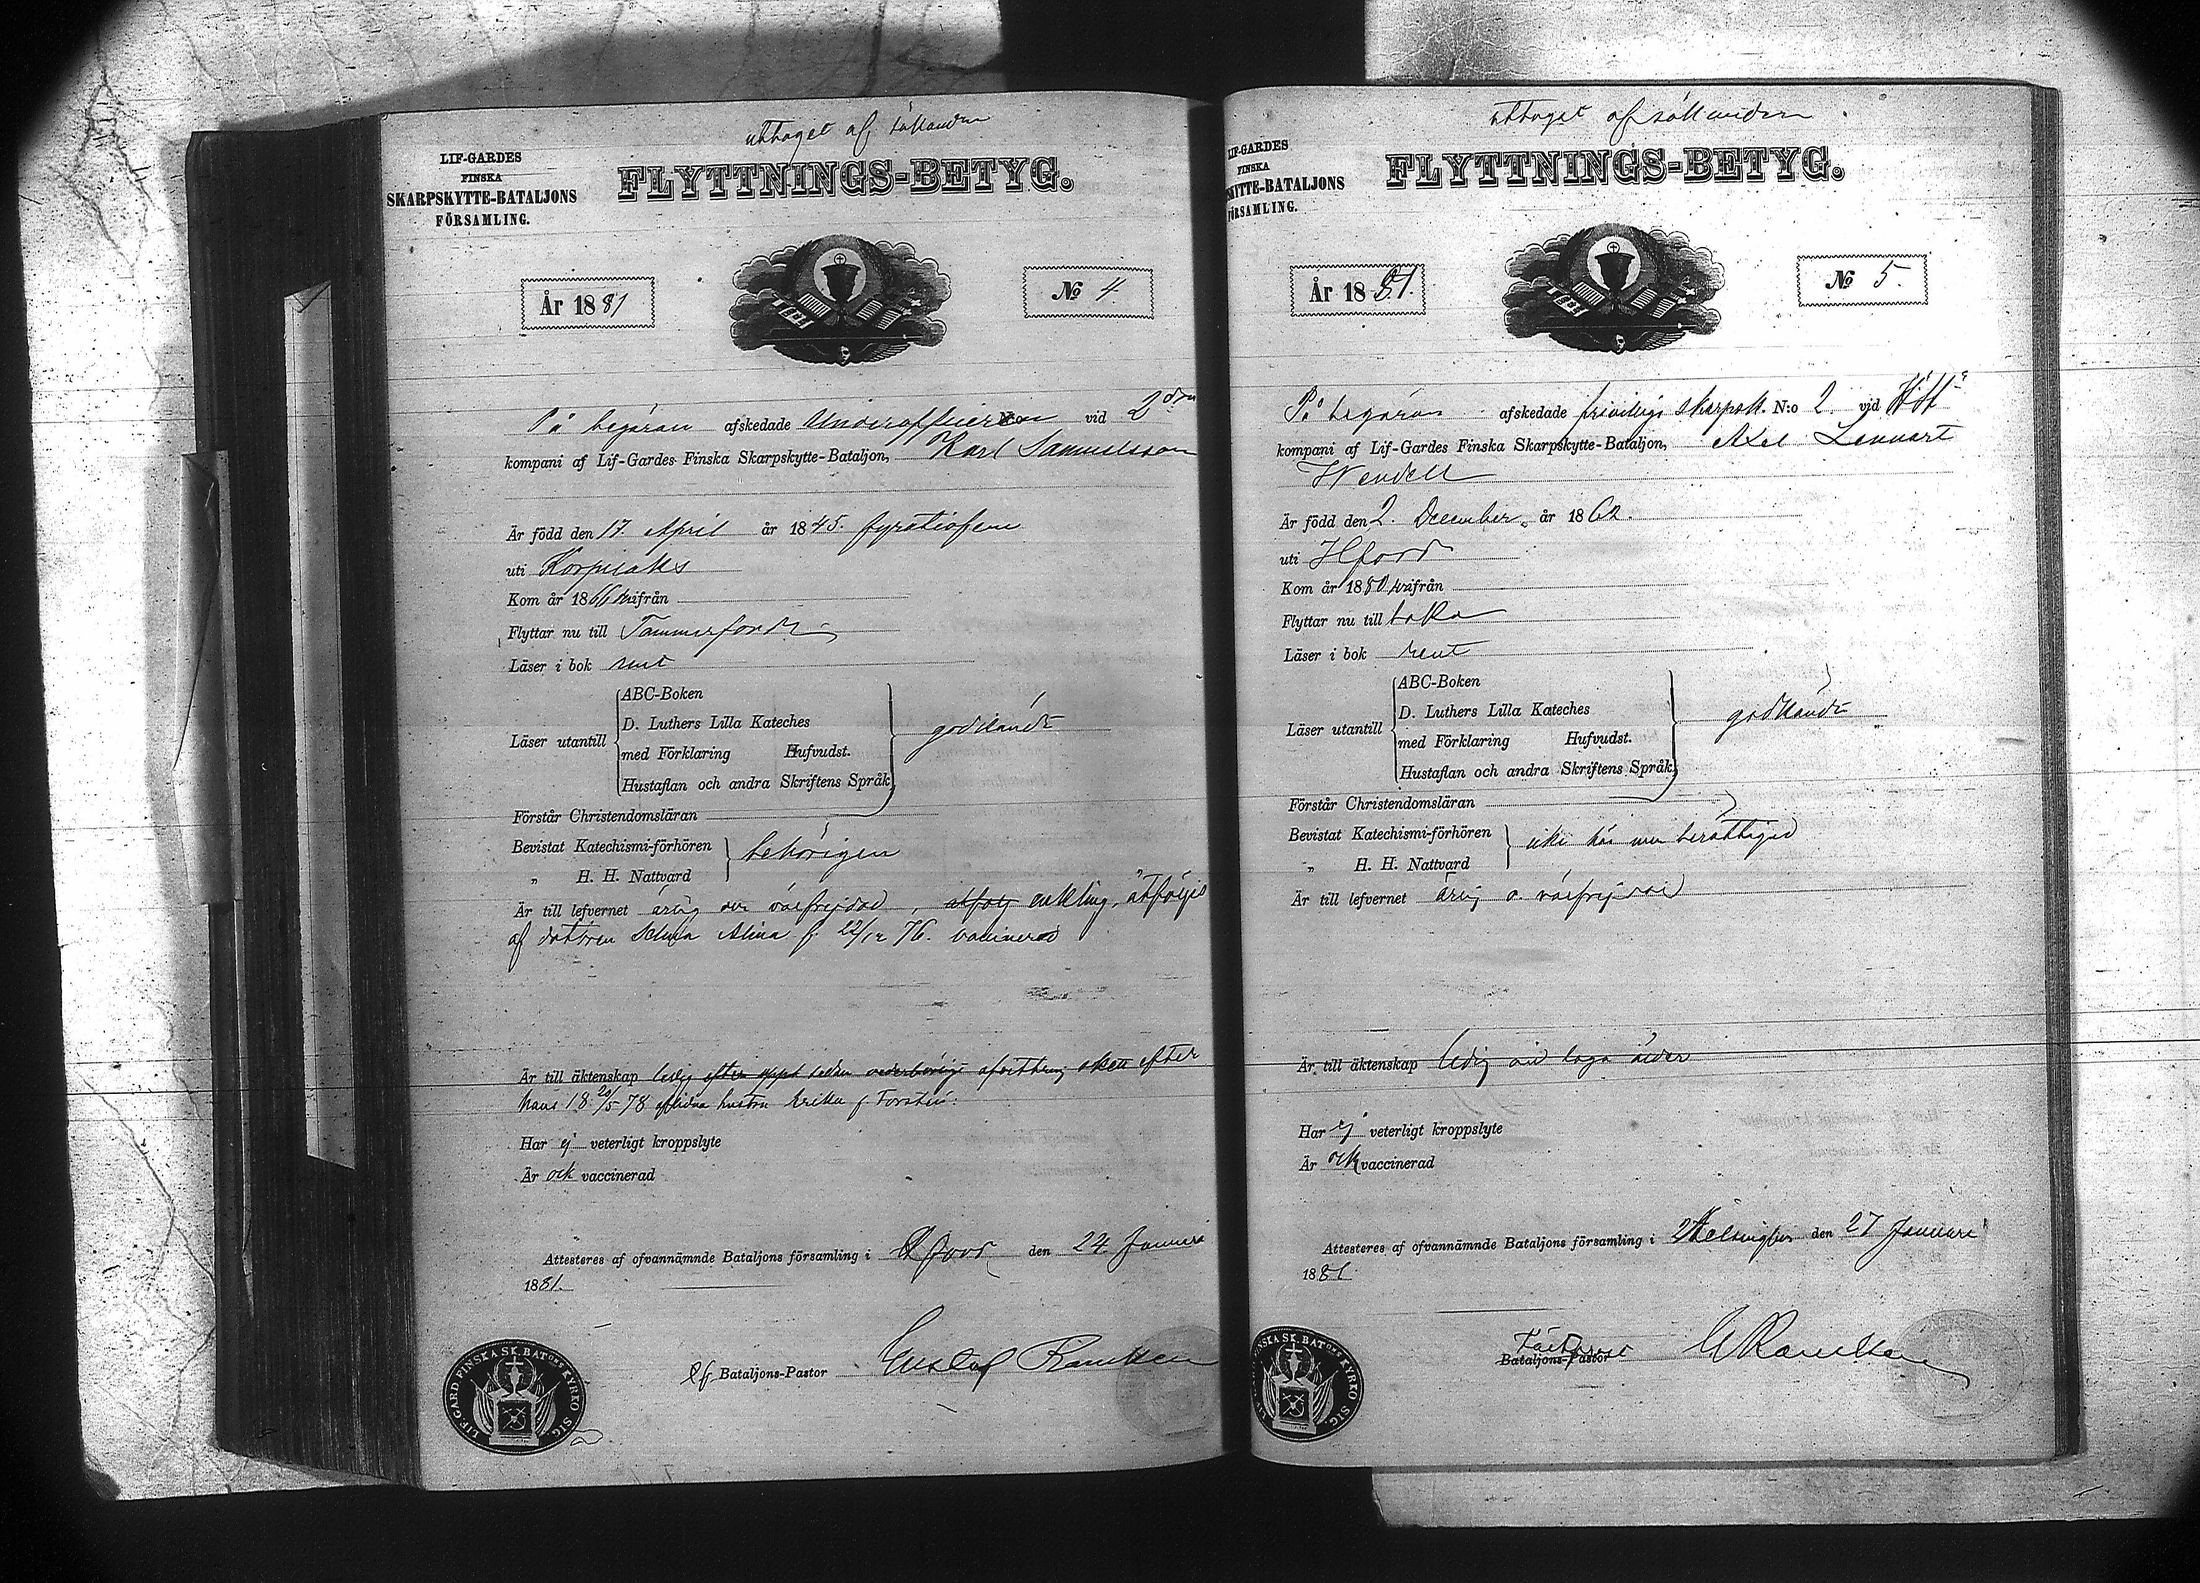 uttaget af sökanden
LIF-GARDES
FINSKA
SKARPSKYTTE-BATALJONS
FÖRSAMLING.
FLYTTNINGS-BETYG.
År 1881
№ 4.
På begäran afskedade Underofficeren vid 2dra
kompani af Lif-Gardes Finska Skarpskytte-Bataljon, Karl Samuelsson
Är född den 17. April år 1845. fyratiofem
uti Korpilaks
Kom år 1866 hit ifrån
Flyttar nu till Tammerfors
Läser i bok rent
Läser utantill
ABC-Boken
D. Luthers Lilla Kateches
med Förklaring Hufvudst.
Hustaflan och andra Skriftens Språk
godkändt
Förstår Christendomsläran
Bevistat Katechismi-förhören
„ H. H. Nattvard
behörigen
Är till lefvernet ärlig och välfrejdad, enkling, åtföljes
af dottren Selma Alina f. 22/12 76. vaccinerad
Är till äktenskap ledig sedan afvittring skett efter
hans 18 20/5 78 aflidna hustru Erika f. Forstén.
Har ej veterligt kroppslyte
Är ock vaccinerad
Attesteres af ofvannämnde Bataljons församling i Hfors den 24 Januari
1881.
Bataljons-Pastor Gustaf
LIF-GARD. FINSKA SK. BATONS KYRKO SIG.
uttaget af sökanden
LIF-GARDES
FINSKA
SKYTTE-BATALJONS
FÖRSAMLING.
FLYTTNINGS-BETYG.
År 1881.
№ 5.
På begäran afskedade frivillige skarpsk. N:o 2. vid
kompani af Lif-Gardes Finska Skarpskytte-Bataljon, Axel Lennart
Wendell
Är född den 2. December år 1862.
uti Hfors
Kom år 1880 hit ifrån
Flyttar nu till
Läser i bok rent
Läser utantill
ABC-Boken
D. Luthers Lilla Kateches
med Förklaring Hufvudst.
Hustaflan och andra Skriftens Språk
godkändt
Förstår Christendomsläran
Bevistat Katechismi-förhören
„ H. H. Nattvard
icke här men berättigad
Är till lefvernet ärlig o. välfrejdad
Är till äktenskap ledig vid laga ålder
Har ej veterligt kroppslyte
Är ock vaccinerad
Attesteres af ofvannämnde Bataljons församling i Helsingfors den 27 Januari
1881.
Bataljons-Pastor
SKA SK. BATONS KYRKO SIG.